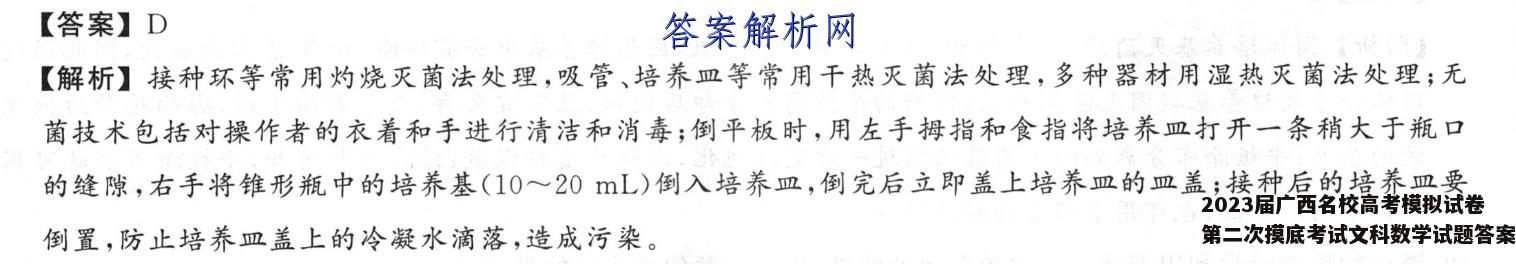 【答案】D
答案解析网
【解析】接种环等常用灼烧灭菌法处理,吸管、培养皿等常用干热灭菌法处理,多种器材用湿热灭菌法处理;无
菌技术包括对操作者的衣着和手进行清洁和消毒;倒平板时,用左手拇指和食指将培养皿打开一条稍大于瓶口
的缝隙,右手将锥形瓶中的培养基(10～20 mL)倒入培养皿,倒完后立即盖上培养皿的皿盖;接种后的培养皿要
倒置,防止培养皿盖上的冷凝水滴落,造成污染。
2023届广西名校高考模拟试卷
第二次摸底考试文科数学试题答案